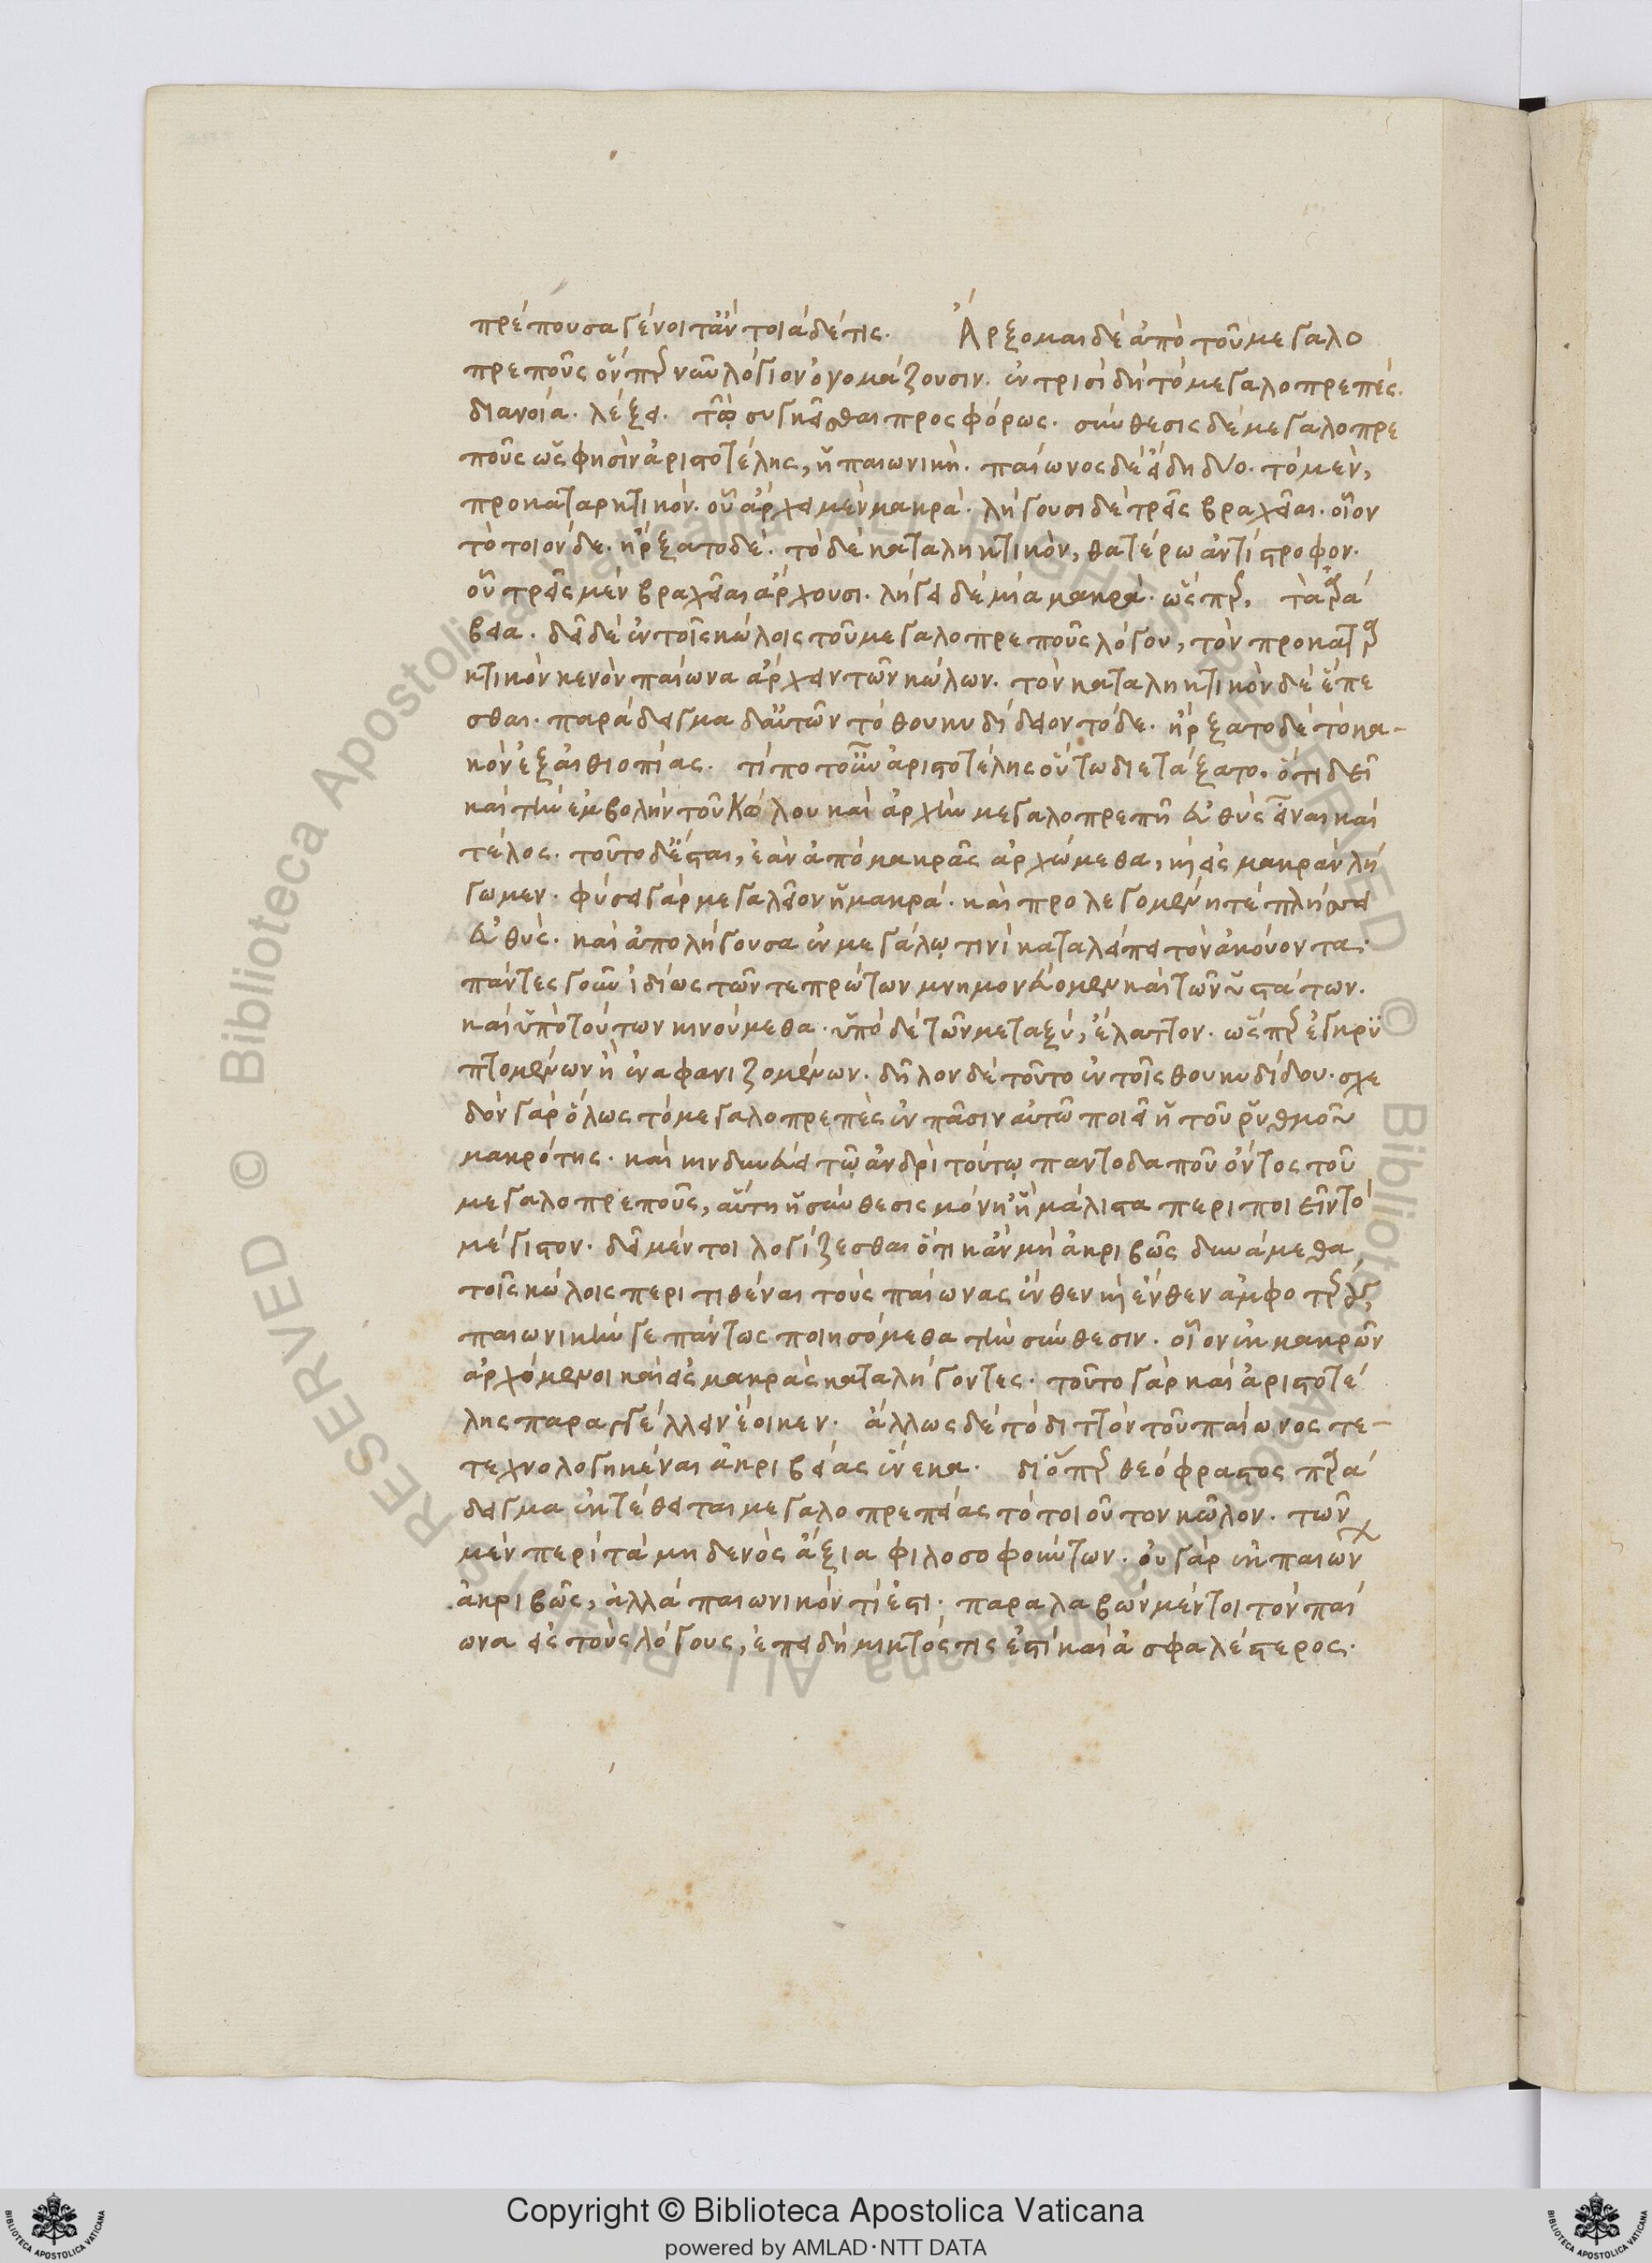 πρέπουσα γένοιτ ἂν τοιάδέ τις. Ἄρξομαι δὲ ἀπὸ τοῦ μεγαλο
πρεποῦς ὅνπερ νῦν λόγιον ὀνομάζουσιν. ἐν τρισὶ δὴ τὸ μεγαλοπρεπές.
διανοία. λέξει. τῶ συγκεῖσθαι προσφόρως. σύνθεσις δὲ μεγαλοπρε
ποῦς ὥς φησὶν ἀριστοτέλης, ἡ παιωνική. παίωνος δὲ εἴδη δύο. τὸ μὲν,
προκαταρκτικόν. οὗ ἄρχει μὲν μακρά. λήγουσι δὲ τρεῖς βραχεῖαι. οἷον
τὸ τοιόνδε. ἤρξατο δὲ. τὸ δὲ καταληκτικὸν, θατέρω ἀντίστροφον.
οὗ τρεῖς μὲν βραχεῖαι ἄρχουσι. λήγει δὲ μία μακρά. ὥσπερ, τἀρρά
βεια. δεῖ δὲ ἐν τοῖς κώλοις τοῦ μεγαλοπρεποῦς λόγου, τὸν προκαταρ
κτικὸν κενὸν παίωνα ἄρχειν τῶν κώλων. τὸν καταληκτικὸν δὲ ἕπε
σθαι. παράδειγμα δ αὐτῶν τὸ θουκυδίδειον τόδε. ἤρξατο δὲ τὸ κα-
κὸν ἐξ αἰθιοπίας. τί ποτ οὖν ἀριστοτέλης οὕτω διετάξατο. ὅτι δεῖ
καὶ τὴν ἐμβολὴν τοῦ κώλου καὶ ἀρχὴν μεγαλοπρεπῆ εὐθὺς εἶναι καὶ
τέλος. τοῦτο δ ἔσται, ἐὰν ἀπὸ μακρᾶς ἀρχώμεθα, καὶ εἰς μακρὰν λή
γωμεν. φύσει γὰρ μεγαλεῖον ἡ μακρά. καὶ προλεγομένη τὲ πλήσσει
εὐθύς. καὶ ἀπολήγουσα ἐν μεγάλῳ τινὶ καταλείπει τὸν ἀκούοντα.
πάντες γοῦν ἰδίως τῶν τε πρώτων μνημονεύομεν καὶ τῶν ὑστάτων.
καὶ ὑπὸ τούτων κινούμεθα. ὑπὸ δὲ τῶν μεταξύ, ἔλαττον. ὥσπερ ἐγκρυ
πτομένων ἢ ἐναφανιζομένων. δῆλον δὲ τοῦτο ἐν τοῖς θουκυδίδου. σχε
δὸν γὰρ ὅλως τὸ μεγαλοπρεπὲς ἐν πᾶσιν αὐτῶ ποιεῖ ἡ τοῦ ῥυθμοῦ
μακρότης. καὶ κινδυνεύει τῷ ἀνδρὶ τούτῳ παντοδαποῦ ὄντος τοῦ
μεγαλοπρεποῦς, αὕτη ἡ σύνθεσις μόνη ἢ μάλιστα περιποιεῖν τὸ
μέγιστον. δεῖ μέντοι λογίζεσθαι ὅτι κἂν μὴ ἀκριβῶς δυνάμεθα
τοῖς κώλοις περιτιθέναι τοὺς παίωνας ἔνθεν καὶ ἔνθεν ἀμφοτέρους,
παιωνικήν γε πάντως ποιησόμεθα τὴν σύνθεσιν. οἷον ἐκ μακρῶν
ἀρχόμενοι καὶ εἰς μακρὰς καταλήγοντες. τοῦτο γὰρ καὶ ἀριστοτέ
λης παραγγέλλειν ἔοικεν. ἄλλως δὲ τὸ διττὸν τοῦ παίωνος τε-
τεχνολογηκέναι ἀκριβείας ἕνεκα. διόπερ θεόφραστος παρά
δειγμα ἐκτέθειται μεγαλοπρεπείας τὸ τοιοῦτον κῶλον. τῶν
μὲν περὶ τὰ μηδενὸς ἄξια φιλοσοφούντων. οὐ γὰρ ἐκ παιώνων
ἀκριβῶς, ἀλλὰ παιωνικόν τί ἐστι. παραλαβὼν μέντοι τὸν παί
ωνα εἰς τοὺς λόγους, ἐπειδὴ μικτός τις ἐστὶ καὶ ἀσφαλέστερος.
Copyright © Biblioteca Apostolica Vaticana
powered by AMLAD·NTT DATA